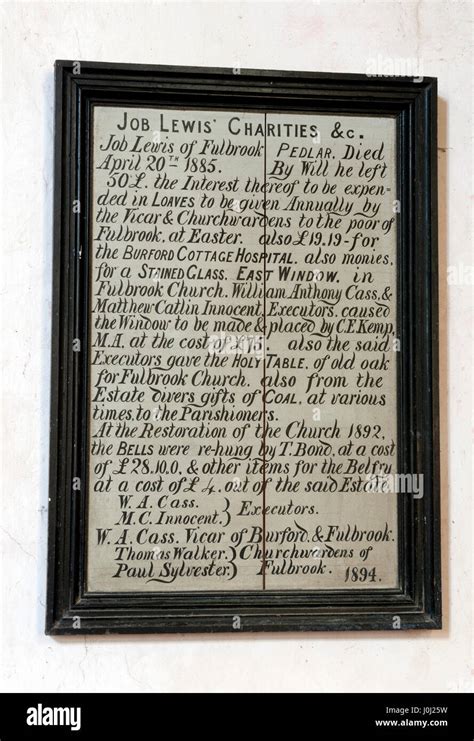 JOB LEWIS' CHARITIES &c.
Job Lewis of Fulbrook PEDLAR. Died
April 20TH 1885. By Will he left
50£. the Interest thereof to be expen-
ded in LOAVES to be given Annually by
the Vicar & Churchwardens to the poor of
Fulbrook, at Easter. also £19.19-for
the BURFORD COTTAGE HOSPITAL. also monies,
for a STAINED GLASS. EAST WINDOW. in
Fulbrook Church. William Anthony Cass, &
Matthew Catlin Innocent, Executors. caused
the Window to be made & placed by C.E. Kemp,
M.A. at the cost of £175. also the said
Executors gave the HOLY TABLE, of old oak
for Fulbrook Church. also from the
Estate divers gifts of COAL, at various
times, to the Parishioners.
At the Restoration of the Church 1892,
the BELLS were re-hung by T. Bond, at a cost
of £28.10.0, & other items for the Belfry
at a cost of £4. out of the said Estate.
W. A. Cass. } Executors.
M.C. Innocent. }
W. A. Cass. Vicar of Burford. & Fulbrook.
Thomas Walker. } Churchwardens of
Paul Sylvester. } Fulbrook. 1894.
alamy
alamy
Image ID: J0J25W
www.alamy.com